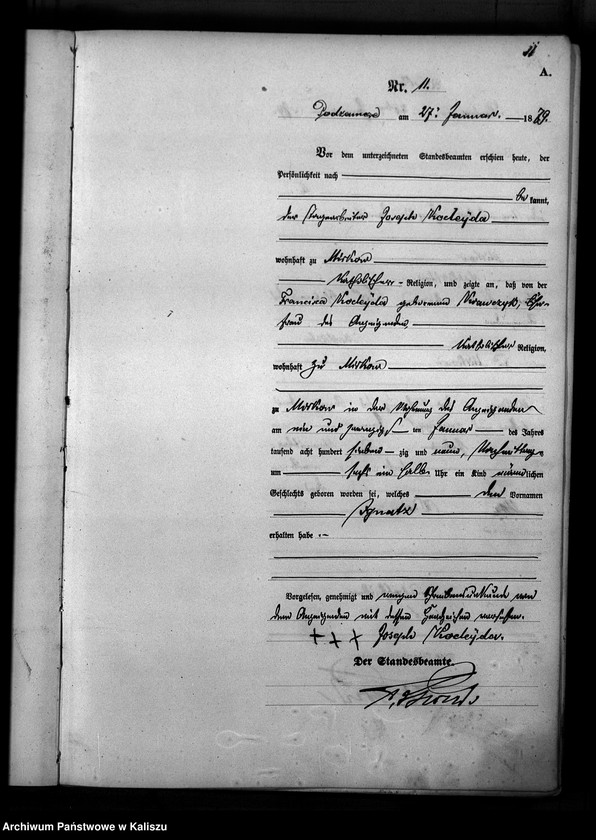 11
A.
Nr. 11.
Podzamcze am 27. Januar. 1879.
Vor dem unterzeichneten Standesbeamten erschien heute, der
Persönlichkeit nach
bekannt,
der Joseph Kocleyda
wohnhaft zu Mirkow
katholischer Religion, und zeigte an, daß von der
Francisca Kocleyda geborenen Krawczyk, Ehe-
frau des Anzeigenden
katholischer Religion,
wohnhaft zu Mirkow
zu Mirkow in der Wohnung des Anzeigenden
am ein und zwanzigsten Januar des Jahres
tausend acht hundert siebenzig und neun, Vormittags
um sechs ein halb Uhr ein Kind männlichen
Geschlechts geboren worden sei, welches den Vornamen
Ignatz
erhalten habe.
Vorgelesen, genehmigt und wegen Schreibensunkunde von
dem Anzeigenden mit dessen Handzeichen versehen.
+++ Joseph Kocleyda.
Der Standesbeamte.
Archiwum Państwowe w Kaliszu